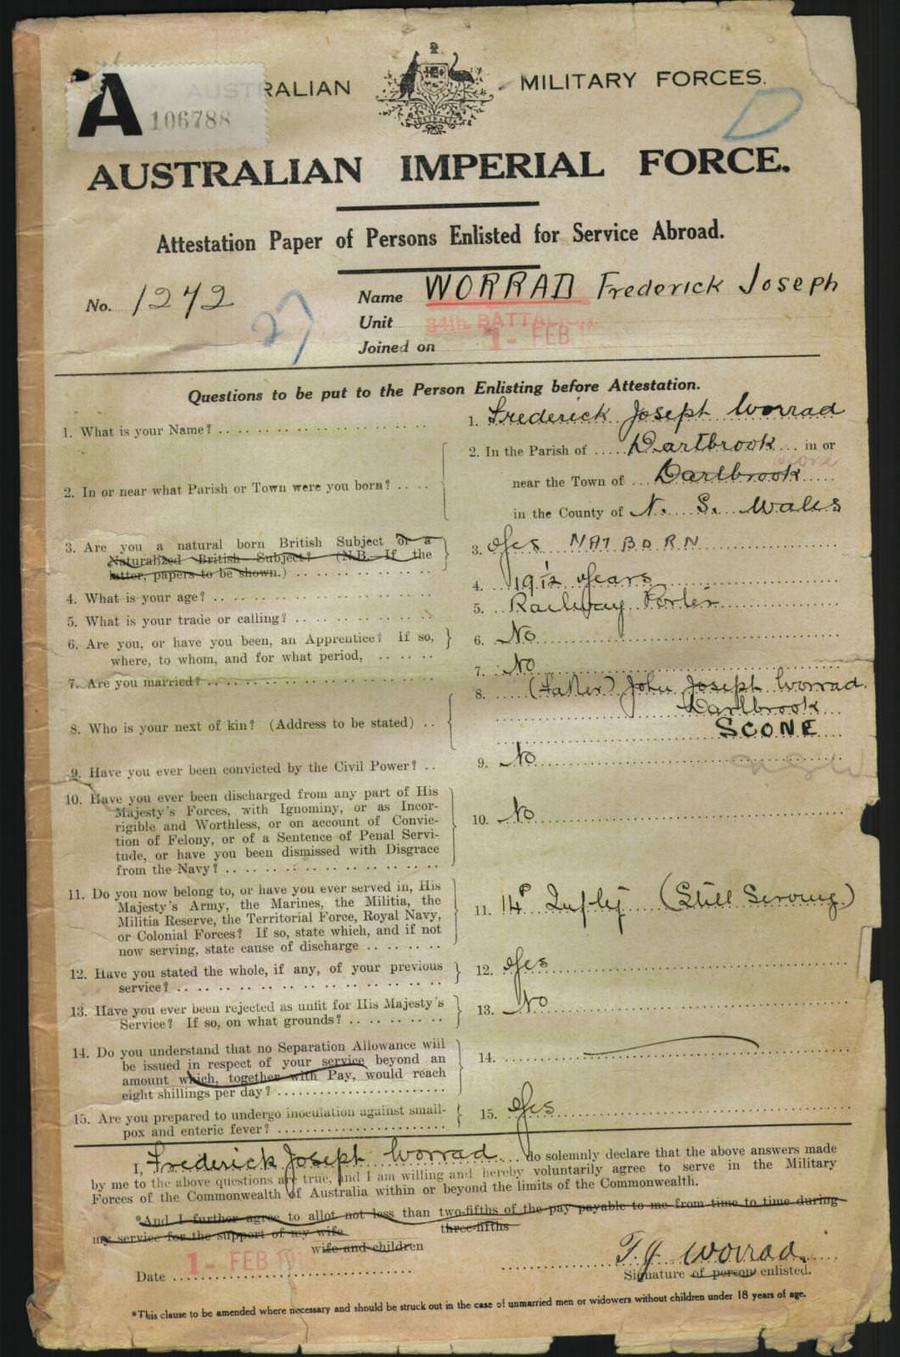 A 106788
AUSTRALIAN MILITARY FORCES.
D
AUSTRALIAN IMPERIAL FORCE.
Attestation Paper of Persons Enlisted for Service Abroad.
No. 1242
27
Name WORRAD Frederick Joseph
Unit 34th BATTALION
Joined on 1- FEB
Questions to be put to the Person Enlisting before Attestation.
1. What is your Name?
1. Frederick Joseph Worrad
2. In or near what Parish or Town were you born?
2. In the Parish of Dartbrook in or
near the Town of Dartbrook Scone
in the County of N. S. Wales
3. Are you a natural born British Subject or a
Naturalized British Subject? (N.B. If the
latter, papers to be shown.)
3. Yes NAT BORN
4. What is your age?
4. 19 1/2 Years
5. What is your trade or calling?
5. Railway Porter
6. Are you, or have you been, an Apprentice? If so,
where, to whom, and for what period,
6. No
7. Are you married?
7. No
8. Who is your next of kin? (Address to be stated)
8. (Father) John Joseph Worrad
Dartbrook
SCONE
NSW
9. Have you ever been convicted by the Civil Power?
9. No
10. Have you ever been discharged from any part of His
Majesty's Forces, with Ignominy, or as Incor-
rigible and Worthless, or on account of Convic-
tion of Felony, or of a Sentence of Penal Servi-
tude, or have you been dismissed with Disgrace
from the Navy?
10. No
11. Do you now belong to, or have you ever served in, His
Majesty's Army, the Marines, the Militia, the
Militia Reserve, the Territorial Force, Royal Navy,
or Colonial Forces? If so, state which, and if not
now serving, state cause of discharge
11. 14 (Still Serving)
12. Have you stated the whole, if any, of your previous
service?
12. Yes
13. Have you ever been rejected as unfit for His Majesty's
Service? If so, on what grounds?
13. No
14. Do you understand that no Separation Allowance will
be issued in respect of your service beyond an
amount which, together with Pay, would reach
eight shillings per day?
14.
15. Are you prepared to undergo inoculation against small-
pox and enteric fever?
15. Yes
I, Frederick Joseph Worrad do solemnly declare that the above answers made
by me to the above questions are true, and I am willing and hereby voluntarily agree to serve in the Military
Forces of the Commonwealth of Australia within or beyond the limits of the Commonwealth.
*And I further agree to allot not less than two-fifths of the pay payable to me from time to time during
three-fifths
my service for the support of my wife
wife and children
Date 1- FEB
F. J. Worrad.
Signature of person enlisted.
*This clause to be amended where necessary and should be struck out in the case of unmarried men or widowers without children under 18 years of age.